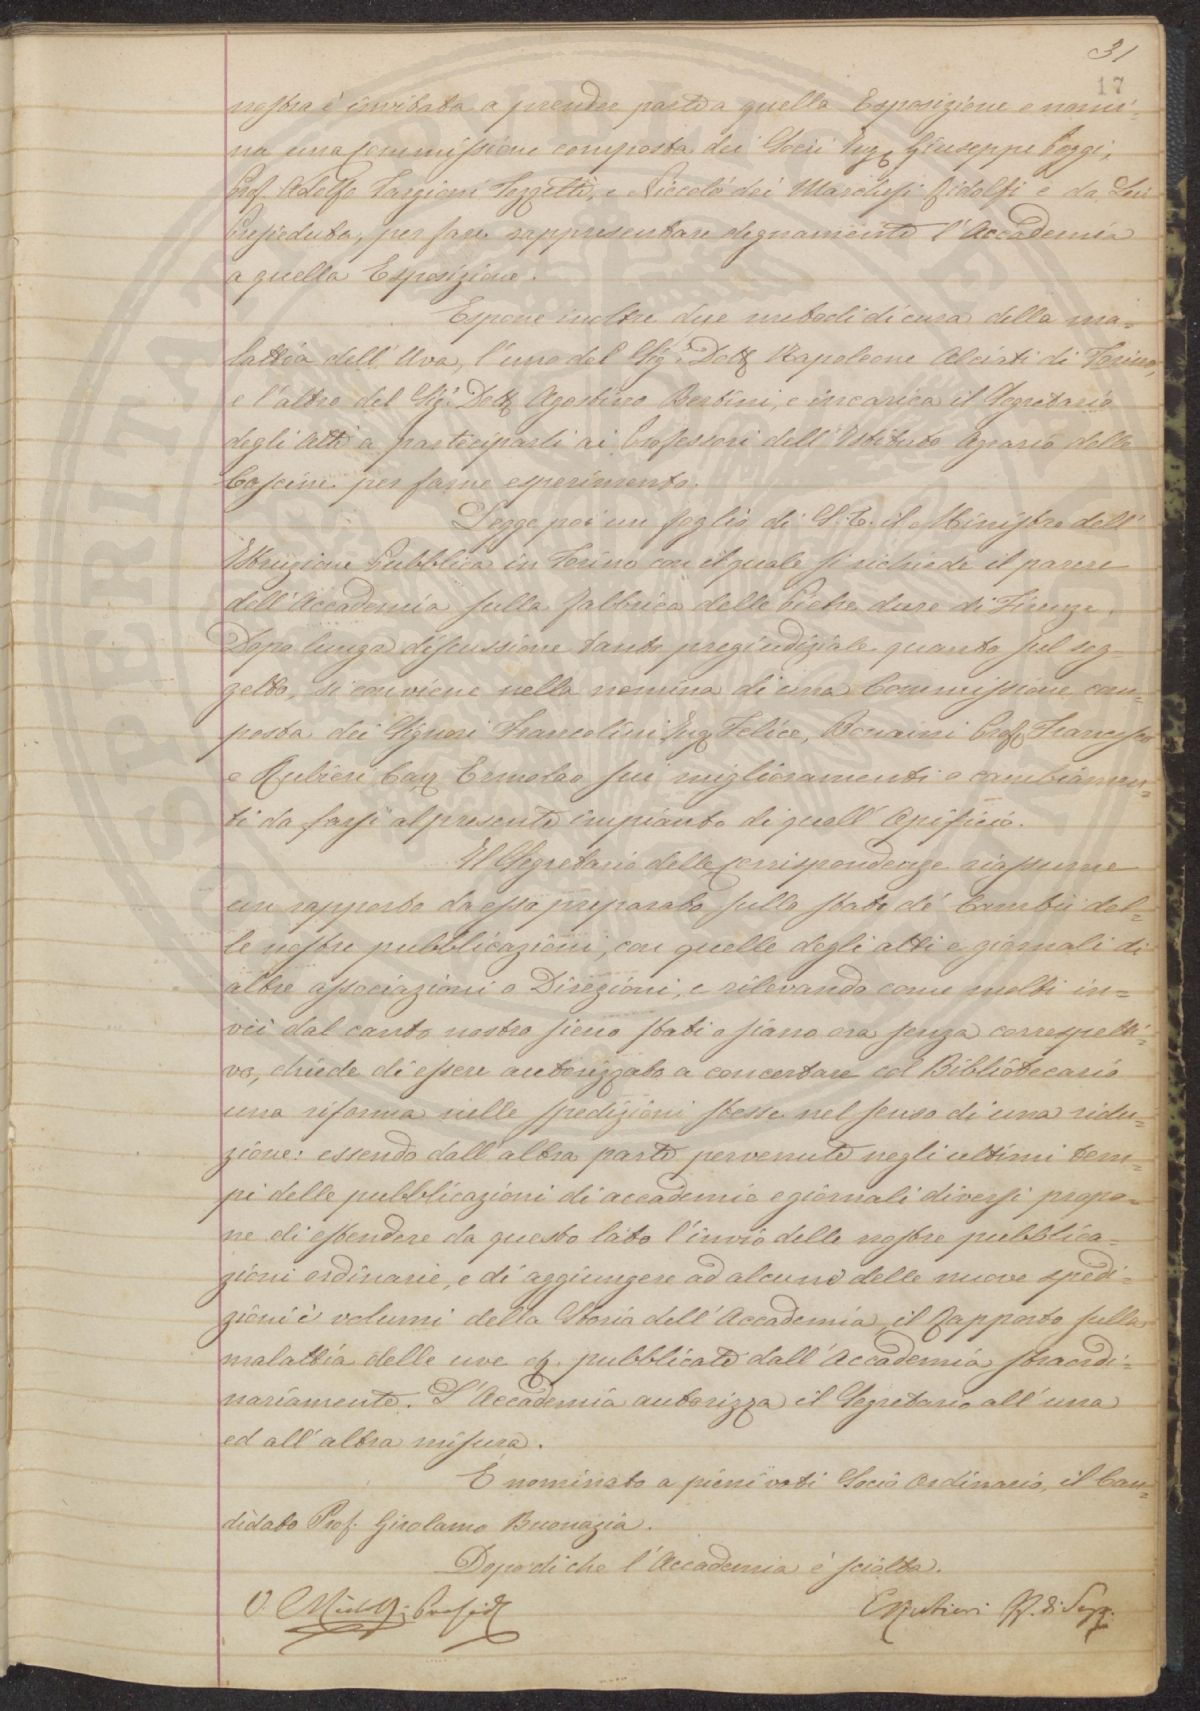 31
17
nostra è invitata a prender parte a quella Esposizione e nomi-
na una Commissione composta dei Socii Ing. Giuseppe Poggi,
Prof. Adolfo Targioni Tozzetti, e Niccolò dei Marchesi Ridolfi e da Lui
Presieduta, per fare rappresentare degnamente l'Accademia
a quella Esposizione.
Espone inoltre due metodi di cura della ma=
lattia dell'Uva, l'uno del Sig. Dott. Napoleone Alciati di Torino,
e l'altro del Sig. Dott. Agostino Bertini, e incarica il Segretario
degli Atti a parteciparli ai Professori dell'Istituto Agrario delle
Cascine per farne esperimento.
Legge poi un foglio di S. E. il Ministro dell'
Istruzione Pubblica in Torino con il quale si richiede il parere
dell'Accademia sulla fabbrica delle Pietre dure di Firenze.
Dopo lunga discussione tanto pregiudiziale quanto sul sog-
getto, si conviene nella nomina di una Commissione com-
posta dei Signori Francolini Ing. Felice, Bonaini Prof. Francesco
e Rubieri Cav. Ermolao sui miglioramenti o cambiamen=
ti da farsi al presente impianto di quell'Opificio.
Il Segretario delle Corrispondenze riassume
un rapporto da esso preparato sullo stato de' Cambii del=
le nostre pubblicazioni, con quelle degli atti e giornali di
altre associazioni o Direzioni, e rilevando come molti in=
vii dal canto nostro sieno stati o siano ora senza correspetti-
vo, chiede di essere autorizzato a concertare col Bibliotecario
una riforma nelle spedizioni stesse nel senso di una ridu-
zione: essendo dall'altra parte pervenute negli ultimi tem-
pi delle pubblicazioni di accademie e giornali diversi propo=
ne di estendere da questo lato l'invio delle nostre pubblica-
zioni ordinarie, e di aggiungere ad alcune delle nuove spedi-
zioni i volumi della Storia dell'Accademia, il Rapporto sulla
malattia delle uve &. pubblicate dall'Accademia straordi-
nariamente. L'Accademia autorizza il Segretario all'una
ed all'altra misura.
È nominato a pieni voti Socio Ordinario, il Can=
didato Prof. Girolamo Buonazia.
Dopo di che l'Accademia è sciolta.
V. Ridolfi Presid.
E Rubieri ff. di Segr.
PROSPERITATI PUBLICAE